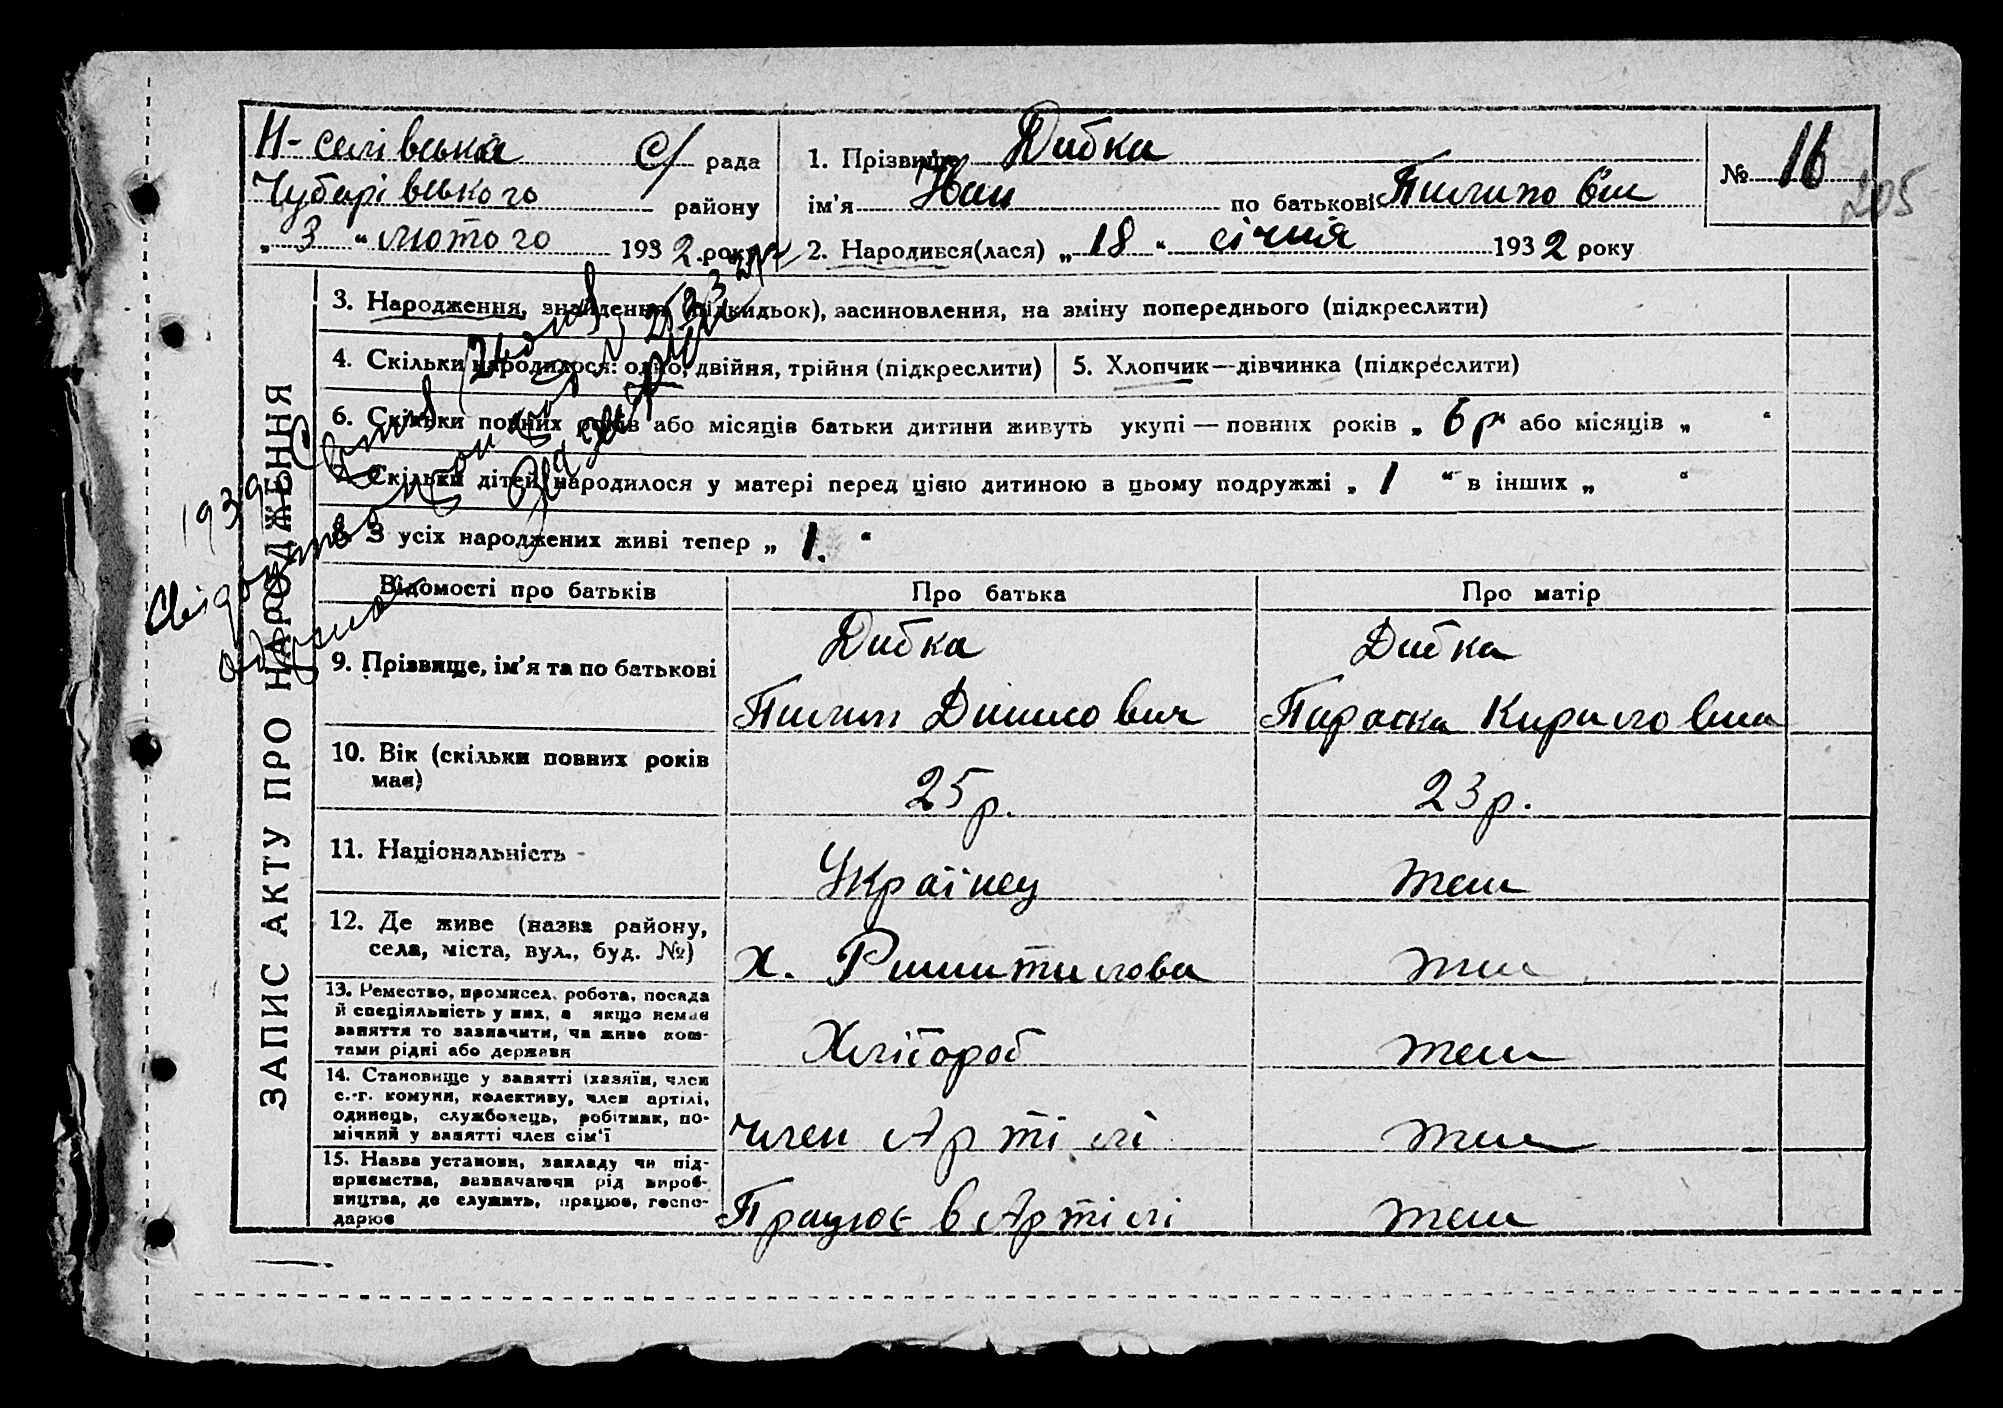 Н-селівська с/ рада
Чубарівського району
„3“ лютого 1932 року
1. Прізвище Дибка
ім'я Іван по батькові Пилипович
2. Народився(лася) „18“ січня 1932 року
№ 16
205
ЗАПИС АКТУ ПРО НАРОДЖЕННЯ
3. Народження, знайдення (підкидьок), засиновлення, на зміну попереднього (підкреслити)
4. Скільки народилося: одно, двійня, трійня (підкреслити)
5. Хлопчик—дівчинка (підкреслити)
6. Скільки повних років або місяців батьки дитини живуть укупі — повних років „ 6 р “ або місяців „ “
7. Скільки дітей народилося у матері перед цією дитиною в цьому подружжі „ 1 “ в інших „ “
8. З усіх народжених живі тепер „ 1. “
1939
Відомості про батьків
Про батька
Про матір
9. Прізвище, ім'я та по батькові
Дибка
Пилип
Дибка
Параска Кириловна
10. Вік (скільки повних років має)
25 р.
23 р.
11. Національність
Українец
теш
12. Де живе (назва району,
села, міста, вул., буд. №)
х.
теш
13. Ремество, промисел, робота, посада
й спеціяльність у них, а якщо немає
заняття то зазначити, чи живе кош-
тами рідні або держави
Хлібороб
теш
14. Становище у занятті (хазяїн, член
с.-г. комуни, колективу, член артілі,
одинець, службовець, робітник, по-
мічний у занятті член сім'ї
член Артілі
теш
15. Назва установи, закладу чи під-
приємства, зазначаючи рід вироб-
ництва, де служить, працює, госпо-
дарює
Працює в Артілі
теш